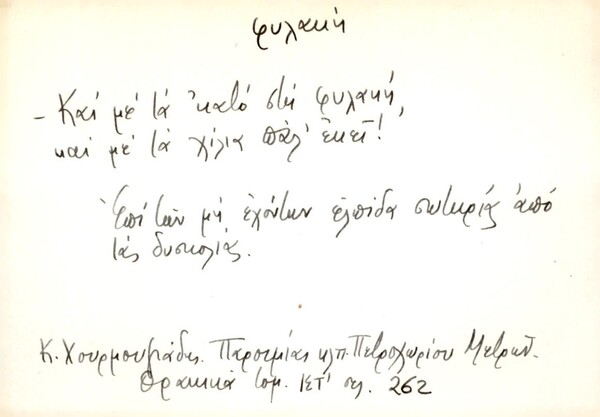 φυλακή
- Καί μέ τά 'κατό στή φυλακή,
και μέ τά χίλια πάλ' ἐκεῖ!
Ἐπί τῶν μή ἐχόντων ἐλπίδα σωτηρίας ἀπό
τάς δυσκολίας.
Κ. Χουρμουζιάδης. Παροιμίαι κλπ. Πετροχωρίου Μετρῶν.
Θρακικά τομ. ΙΣΤ' σελ. 262